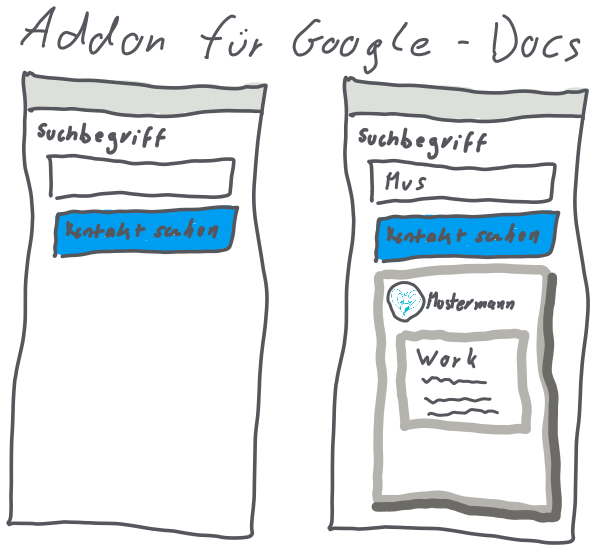 Addon für Google - Docs
Suchbegriff
Kontakt suchen
Suchbegriff
Mus
Kontakt suchen
Mustermann
Work